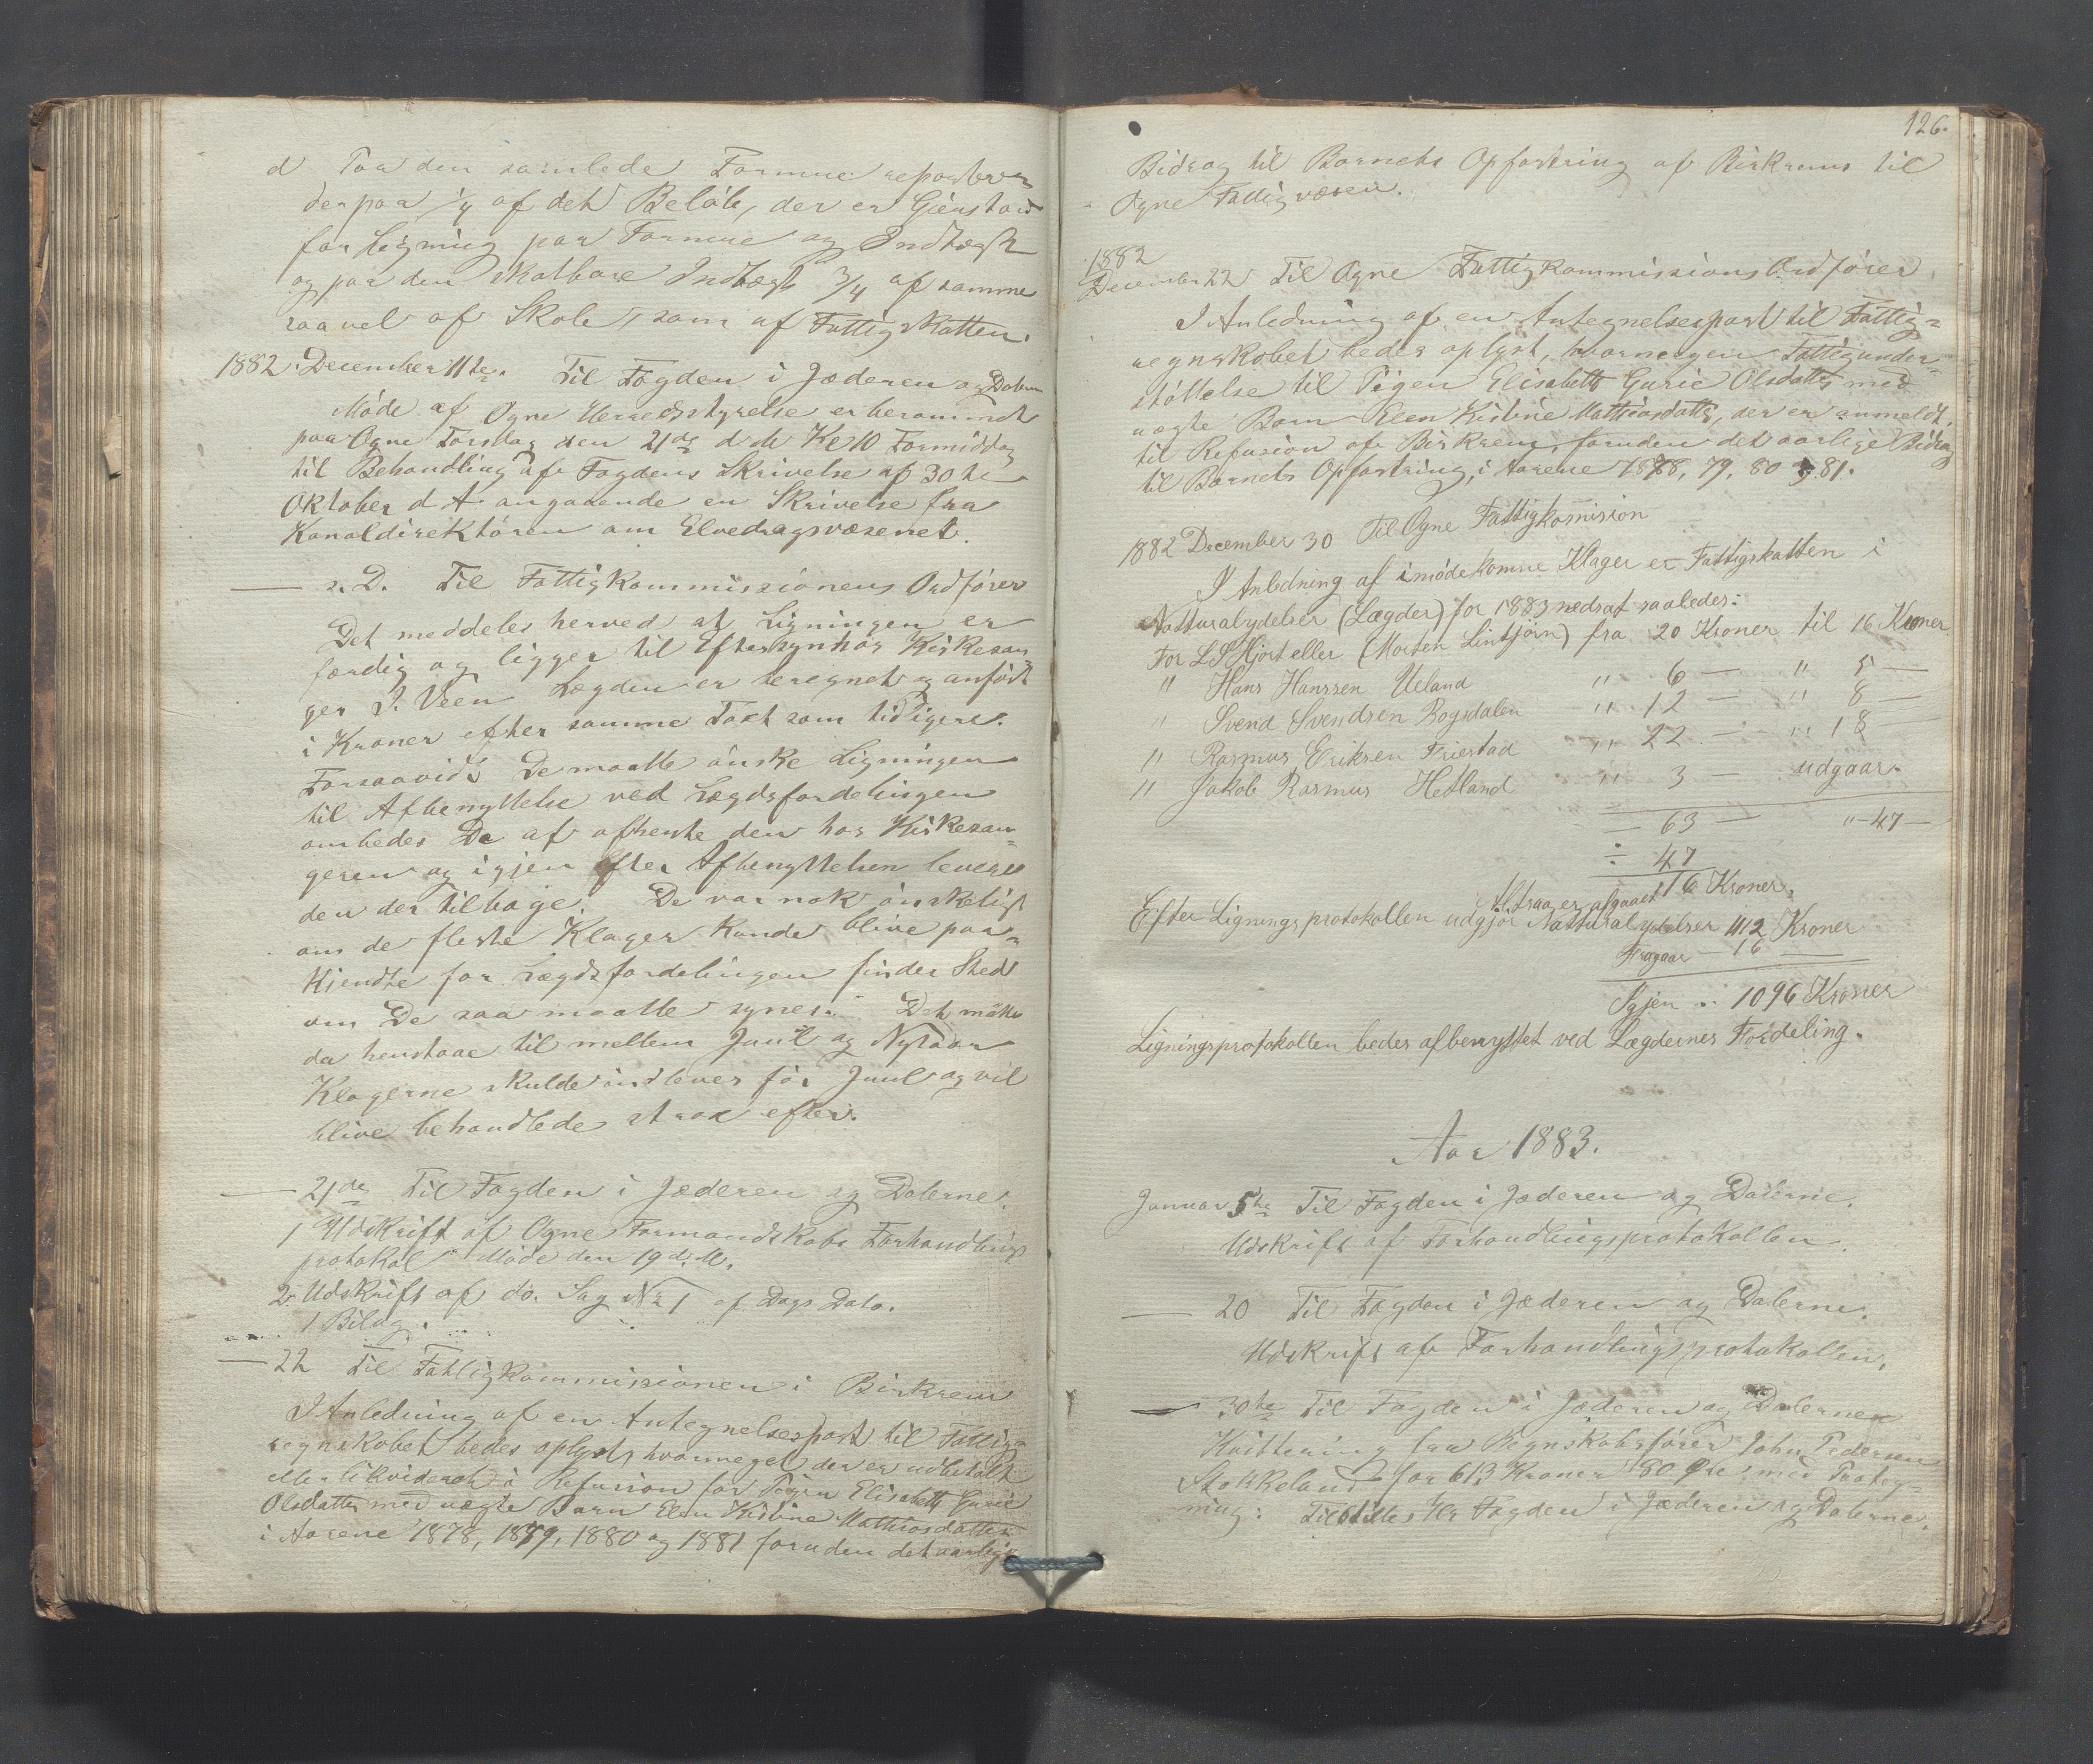 d Paa den samlede Formue reparteres
derpaa 1/4 af det Beløb, der er Gjenstand
for Ligning paa Formue og Indtægt
og paa den skatbare Indtægt 3/4 af samme
saavel af Skole, som af Fattigskatten.
1882 December 11te. Til Fogden i Jæderen og Dalerne
Møde af Ogne Herredsstyrelse er berammet
paa Ogne Torsdag den 21de d M Kl 10 Formiddag
til Behandling af Fogdens Skrivelse af 30te
Oktober d A. angaaende en Skrivelse fra
Kanaldirektøren om Elvedragsvæsenet.
— s. D. Til Fattigkommissionens Ordfører
Det meddeles herved at Ligningen er
færdig og ligger til Eftersyn hos Kirkesan-
ger I. Veen Lægden er beregnet og anført
i Kroner efter samme Taxt som tidligere.
Forsaavidt De maatte ønske Ligningen
til Afbenyttelse ved Lægdsfordelingen
ombedes De at afhente den hos Kirkesan-
geren og igjen efter Afbenyttelsen levere
den der tilbage. De var nok ønskeligt
om de fleste Klager kunde blive paa-
kjendte før Lægdsfordelingen finder Sted
om De saa maatte synes. Det måtte
da henstaae til mellem Juul og Nytaar
Klagerne skulde indleves før Juul og vil
blive behandlede strax efter.
— 21de Til Fogden i Jæderen og Dalerne.
1 Udskrift af Ogne Formandskabs Forhandlings
protokol Møde den 19 d. M.
2 Udskrift af do. Sag No 1 af Dags Dato.
1 Bilag.
— 22 Til Fattigkommissionen i Birkrem
I Anledning af en Antegnelsespost til Fattig-
regnskabet bedes oplyst, hvormeget der er udbetalt
eller likvideret i Refusion for Pigen Elisabeth Gurie
Olsdatter med uægte Barn Elen Kistine Mathiasdatter
i Aarene 1878, 1879, 1880 og 1881 foruden det aarlige
126.
Bidrag til Barnets Opfostring af Birkrems til
Ogne Fattigvæsen.
1882
December 22 Til Ogne Fattigkommissions Ordfører
I Anledning af en Antegnelsespost til Fattig-
regnskabet bedes oplyst, hvormegen Fattigunder-
støttelse til Pigen Elisabeth Gurie Olsdatter med
uægte Barn Elen Kistine Mathiasdatter, der er anmeldt
til Refusion af Birkrem, foruden det aarlige Bidrag
til Barnets Opfostring, i Aarene 1878, 79, 80 og 81.
1882 December 30 Til Ogne Fattigkomision
I Anledning af imødekomne Klager er Fattigskatten i
Natturalydelser (Lægder) for 1883 nedsat saaledes:
For L S Hjort eller (Morten Lintjørn) fra 20 Kroner til 16 Kroner
" Hans Hanssen Ueland " 6 — " 5 —
" Svend Svendsen Rogsdalen " 12 — " 8 —
" Rasmus Eriksen Friestad " 22 — " 18
" Jakob Rasmus Hetland " 3 — udgaar.
— 63 — " – 47 —
÷ 47
Altsaa er afgaaet 16 Kroner.
Efter Ligningsprotokollen udgjør Natturalydelser 1112 Kroner
Fragaar — 16 —
Igjen .. 1096 Kroner
Ligningsprotokollen bedes afbenyttet ved Lægdernes Fordeling.
Aar 1883.
Januar 5te Til Fogden i Jæderen og Dalerne.
Udskrift af Forhandlingsprotokollen.
— 20 Til Fogden i Jæderen og Dalerne.
Udskrift af Forhandlingsprotokollen.
— 30te Til Fogden i Jæderen og Dalerne
Kvittering fra Regnskabsfører John Pedersen
Stokkeland for 613 Kroner 80 Øre med Paateg-
ning: Tilstilles Hr Fogden i Jæderen og Dalerne.